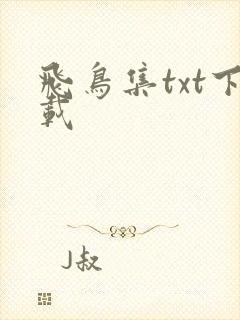 飛鳥集txt下
載
J叔